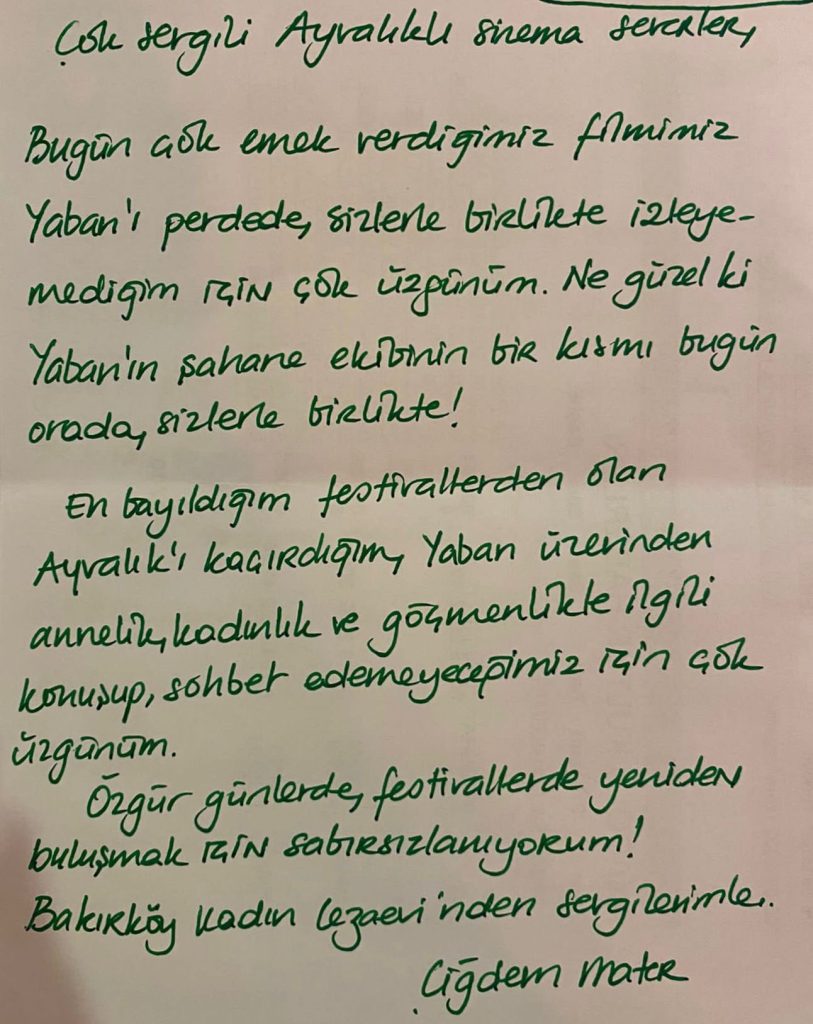 Çok sevgili Ayvalıklı sinema severler,
Bugün çok emek verdiğimiz filmimiz
Yaban'ı perdede, sizlerle birlikte izleye-
mediğim için çok üzgünüm. Ne güzel ki
Yaban'ın şahane ekibinin bir kısmı bugün
orada, sizlerle birlikte!
En bayıldığım festivallerden olan
Ayvalık'ı kaçırdığım, Yaban üzerinden
annelik, kadınlık ve göçmenlikle ilgili
konuşup, sohbet edemeyeceğimiz için çok
üzgünüm.
Özgür günlerde, festivallerde yeniden
buluşmak için sabırsızlanıyorum!
Bakırköy Kadın Cezaevi'nden sevgilerimle.
Çiğdem Mater